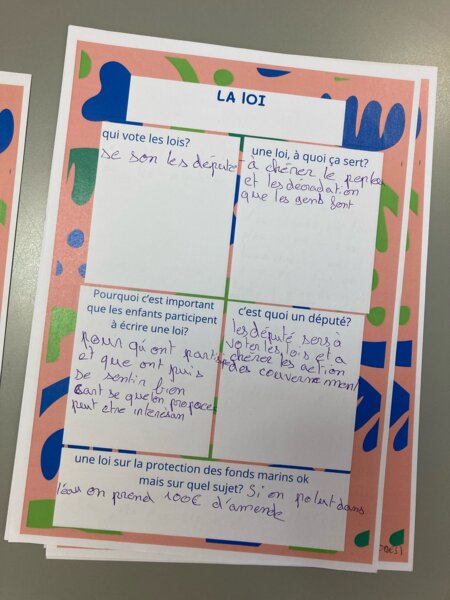 LA lOI
qui vote les lois?
se son les députe
une loi, à quoi ça sert?
à chérer le peple
et les dégradation
que les gens font
Pourquoi c'est important
que les enfants participent
à écrire une loi?
pour qu'ont partisipe
et que ont puis
se sentir bien
cart se que ton propose
peut etre interesan
c'est quoi un député?
les député sers à
voter les lois et a
chérer les action
des couvernemen
une loi sur la protection des fonds marins ok
mais sur quel sujet? Si on polut dans
l'eau on prend 100€ d'amende